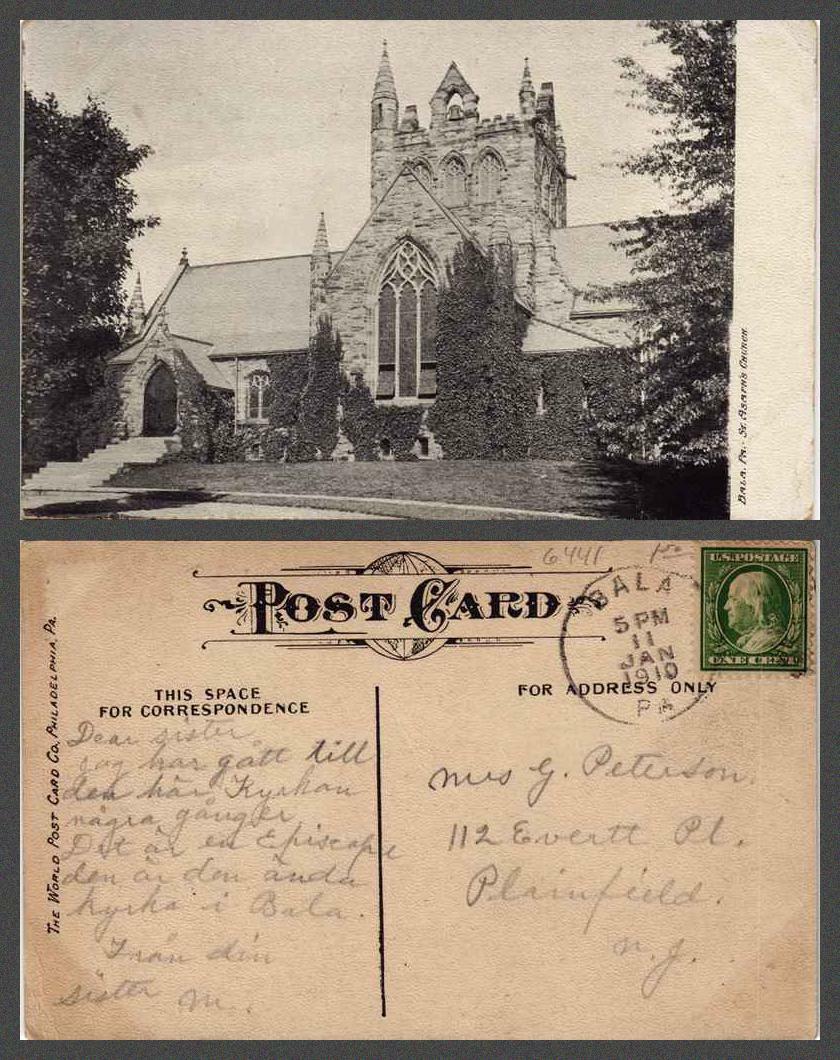 Bala, Pa. - St. Asaph's Church.
6441
POST CARD
THE WORLD POST CARD CO., PHILADELPHIA, PA.
U.S. POSTAGE
ONE CENT
BALA
5 PM
11
JAN
1910
PA
THIS SPACE
FOR CORRESPONDENCE
FOR ADDRESS ONLY
Dear sister
jag har gått till
den här Kyrkan
några gånger
Det är en Episcope
den är den ända
kyrka i Bala.
Från din
sister M.
Mrs G. Peterson.
112 Evertt Pl.
Plainfield.
N. J.